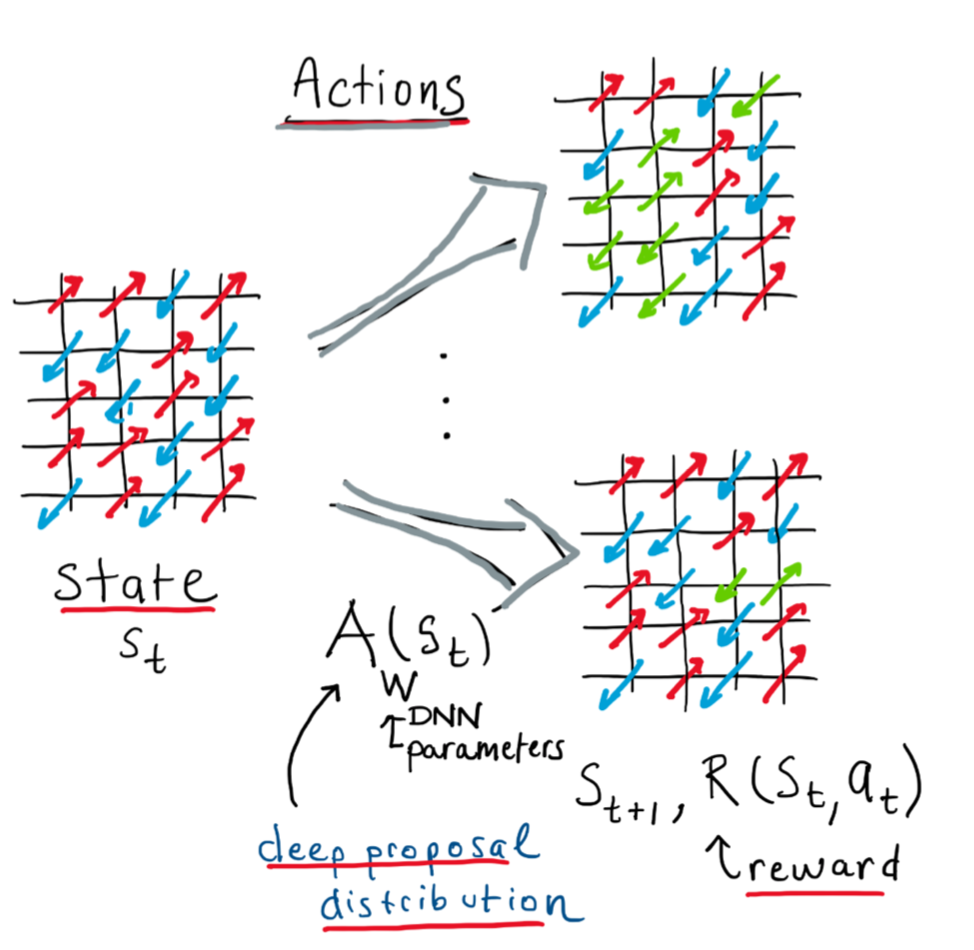 Actions
State
S_t
A_W(S_t)
DNN
parameters
deep proposal
distribution
S_{t+1}, R(S_t, a_t)
reward